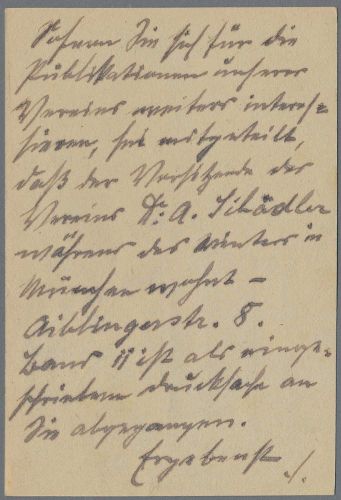 Sofern Sie sich für die
Publikationen unseres
Vereins weiters interes-
sieren, sei mitgeteilt,
daß der Vorsitzende des
Vereins Dr. A. Schädler
während des Winters in
München wohnt –
Aiblingerstr. 8.
Band II ist als einge-
schriebene Drucksache an
Sie abgegangen.
Ergebenst